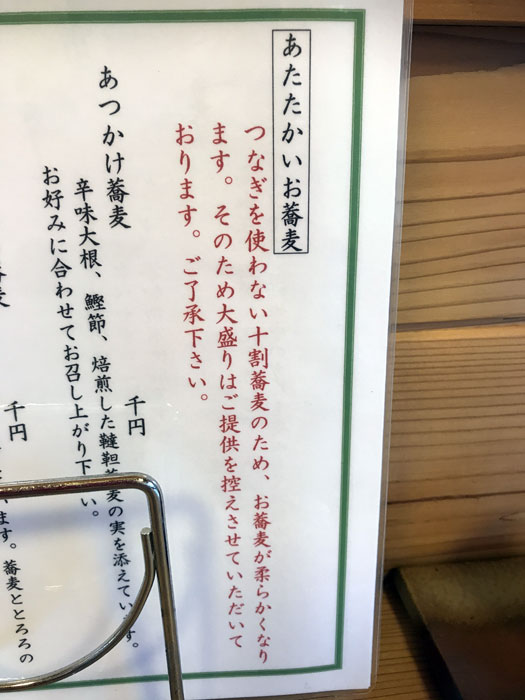 あたたかいお蕎麦
つなぎを使わない十割蕎麦のため、お蕎麦が柔らかくなり
ます。そのため大盛りはご提供を控えさせていただいて
おります。ご了承下さい。
あつかけ蕎麦
千円
辛味大根、鰹節、焙煎した韃靼蕎麦の実を添えています。
お好みに合わせてお召し上がり下さい。
蕎麦
千円
ます。蕎麦ととろろの